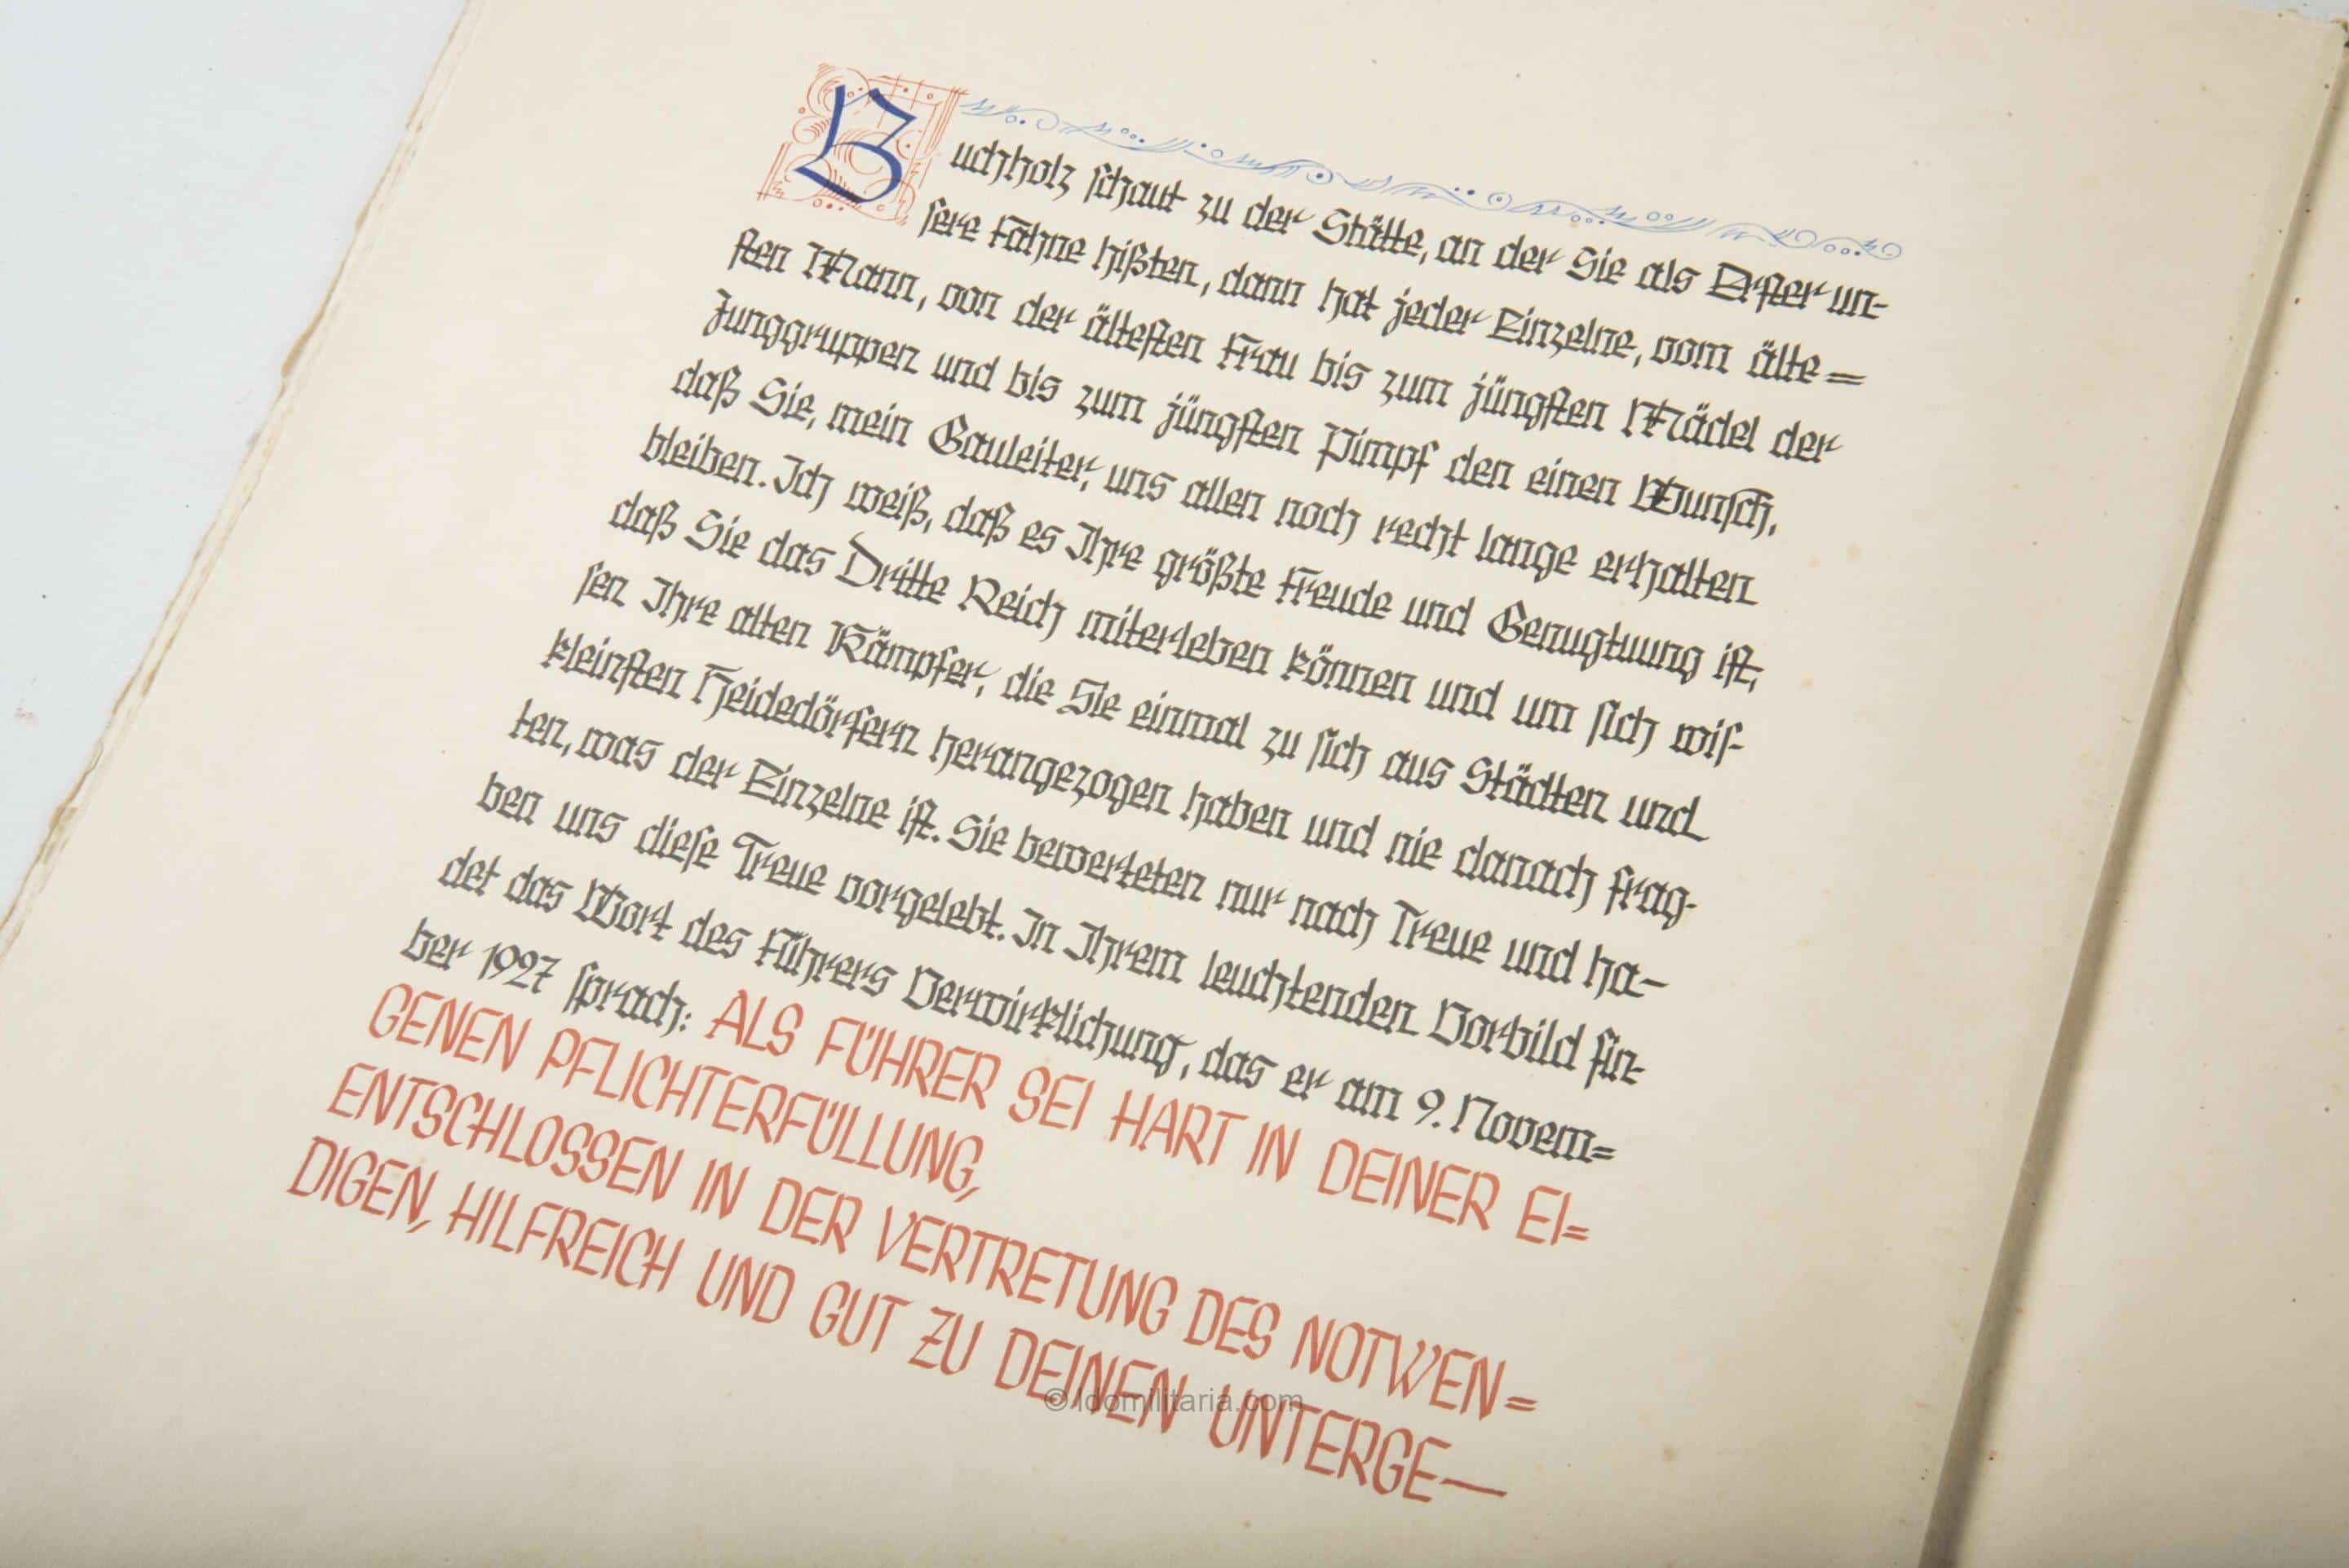 Buchholz schaut zu der Stätte, an der Sie als Erster un-
sere Fahne hißten, dann hat jeder Einzelne, vom älte=
sten Mann, von der ältesten Frau bis zum jüngsten Mädel der
Junggruppen und bis zum jüngsten Pimpf den einen Wunsch,
daß Sie, mein Gauleiter, uns allen noch recht lange erhalten
bleiben. Ich weiß, daß es Ihre größte Freude und Genugtuung ist,
daß Sie das Dritte Reich miterleben können und um sich wis-
sen Ihre alten Kämpfer, die Sie einmal zu sich aus Städten und
kleinsten Heidedörfern herangezogen haben und nie danach frag-
ten, was der Einzelne ist. Sie bewerteten nur nach Treue und ha-
ben uns diese Treue vorgelebt. In Ihrem leuchtenden Vorbild fin-
det das Wort des Führers Verwirklichung, das er am 9. Novem=
ber 1927 sprach: ALS FÜHRER SEI HART IN DEINER EI=
GENEN PFLICHTERFÜLLUNG,
ENTSCHLOSSEN IN DER VERTRETUNG DES NOTWEN=
DIGEN, HILFREICH UND GUT ZU DEINEN UNTERGE-
© ldomilitaria.com